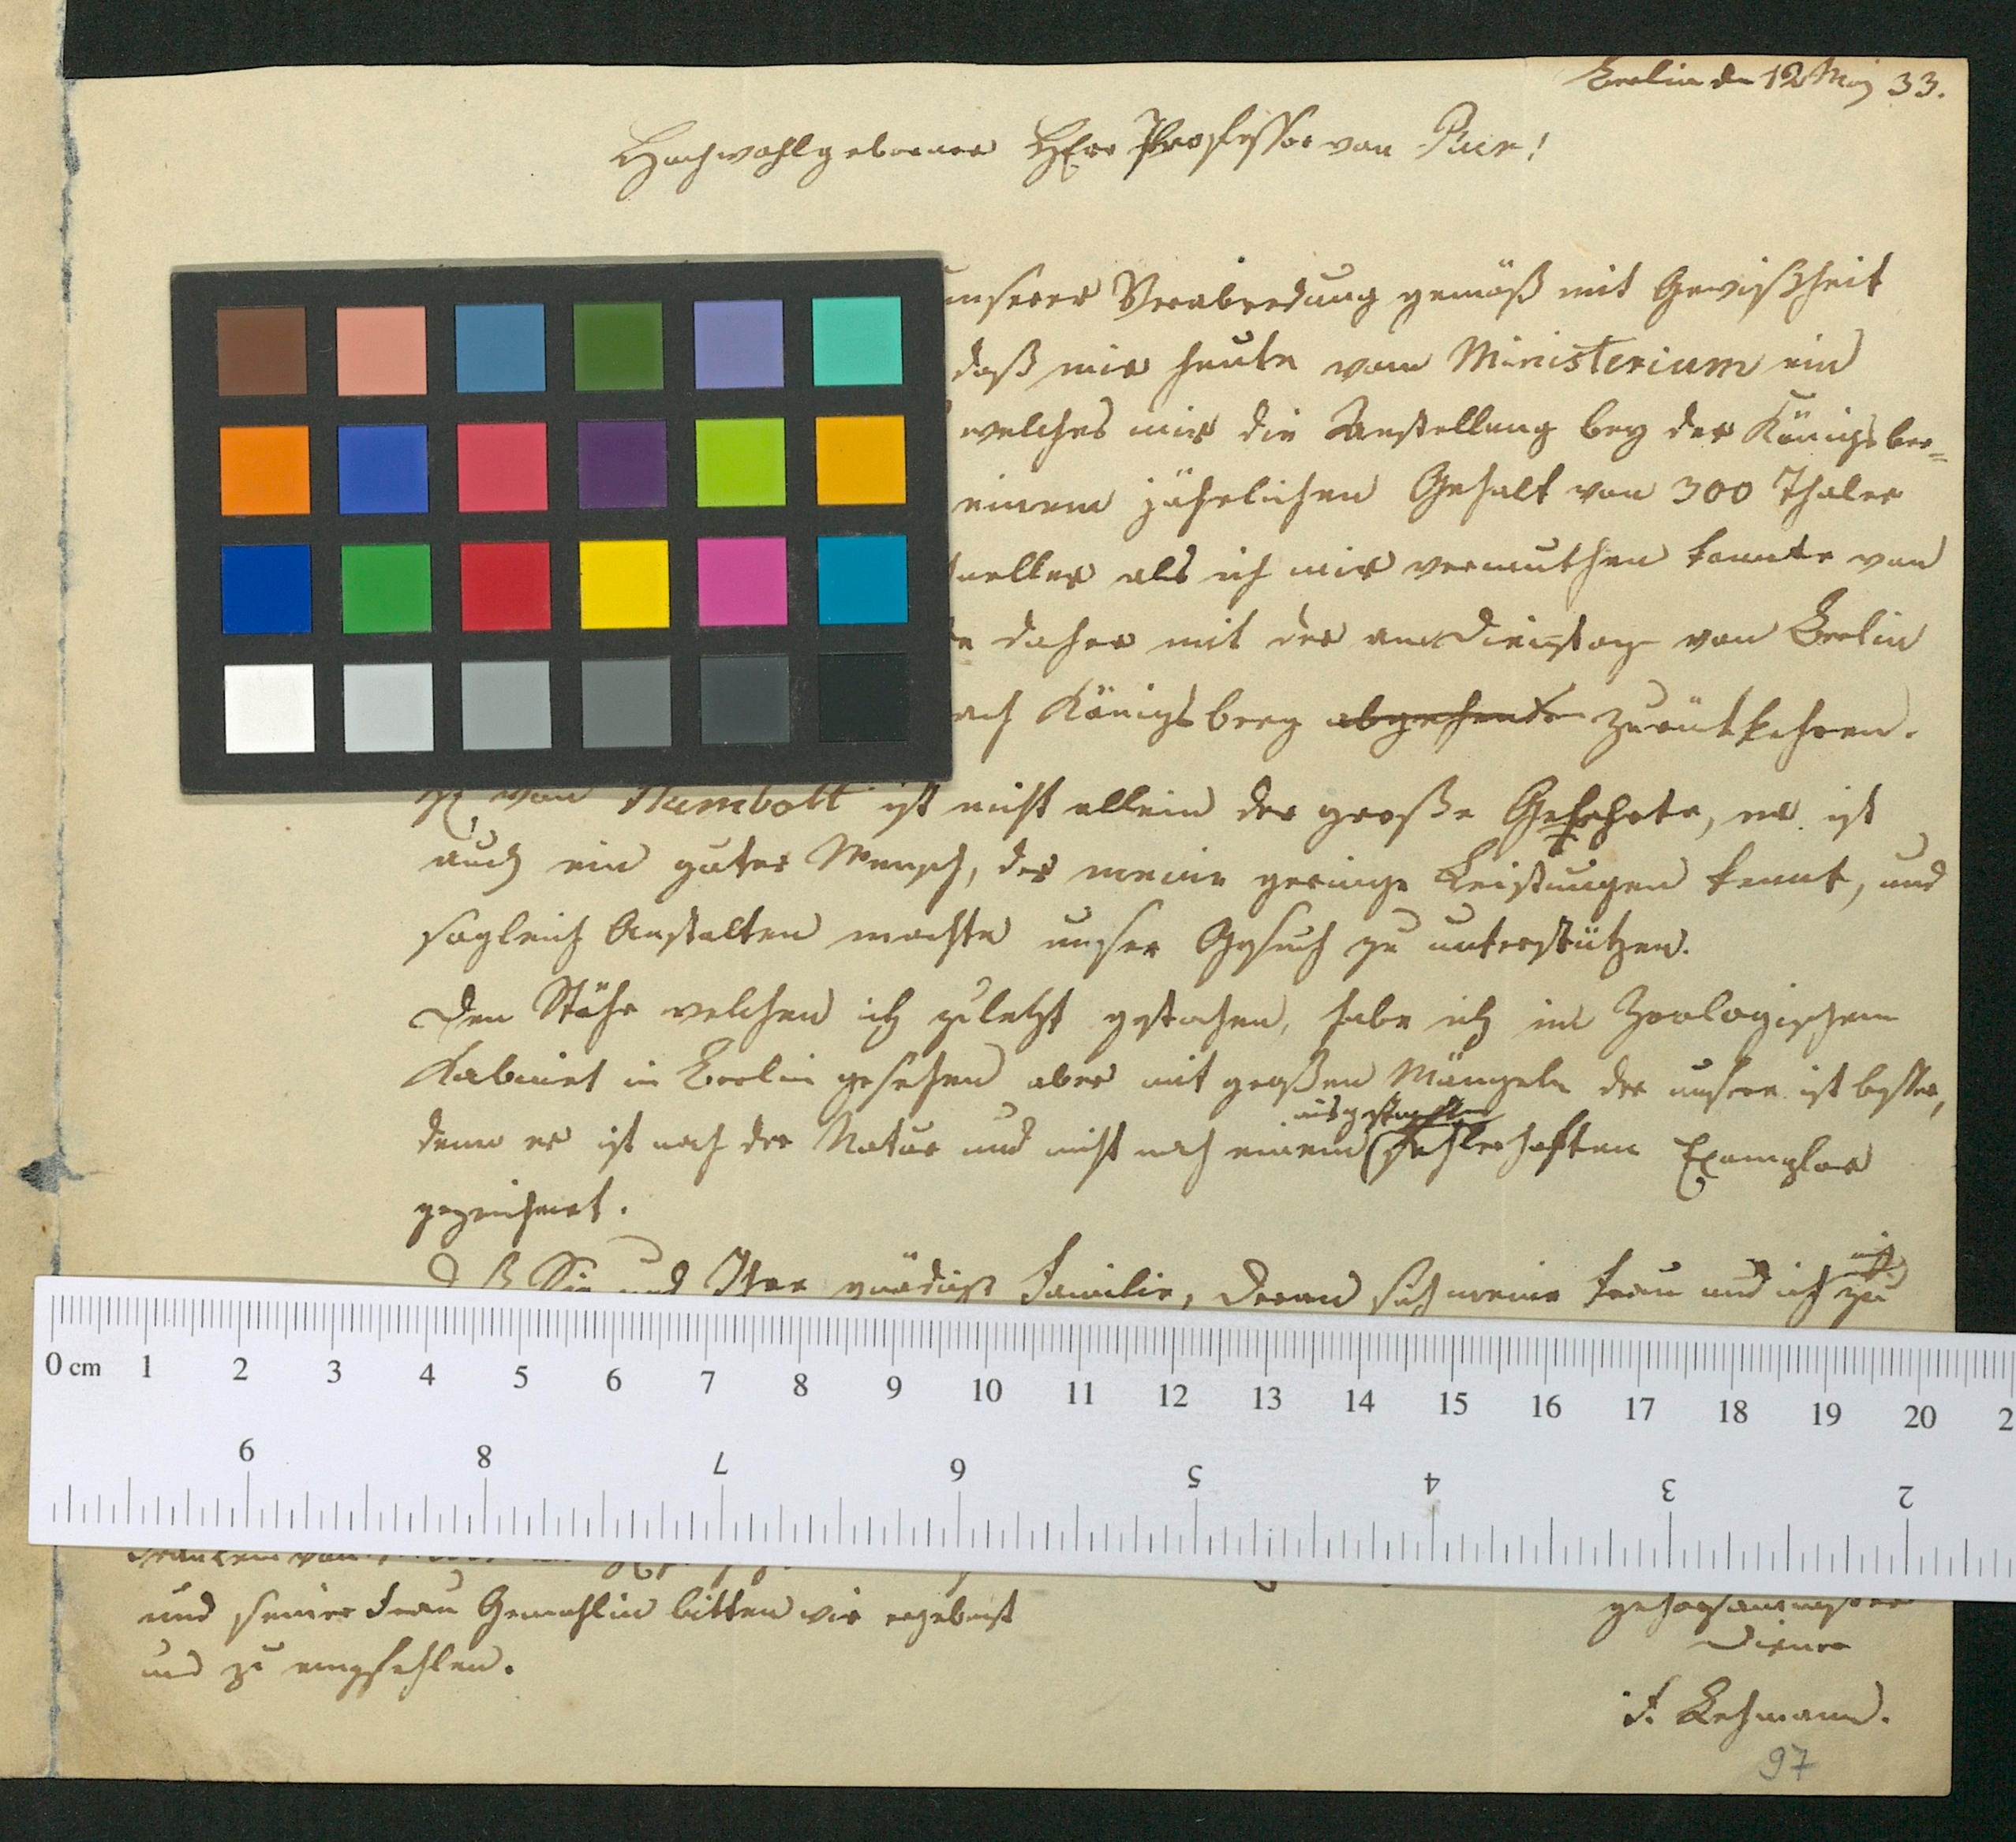 Berlin den 12 May 33.
Hochwohlgeborner HErr Professor von Baer!
unserer Verabredung gemäß mit Gewißheit
daß mir heute vom Ministerium ein
welches mir die Anstellung bey der Königsber=
einem jährlichen Gehalt von 300 Thaler
neller als ich mir vermuthen konnte von
daher mit der am Dienstag von Berlin
ach Königsberg abgehende zurükkehren.
von Humbolt ist nicht allein der große Gelehrte, er ist
auch ein guter Mensch, der meine geringe Leistungen kennt, und
sogleich Anstalten machte unser Gesuch zu unterstützen.
Den Stöhr welchen ich zuletzt gestochen, habe ich im Zoologischem
Kabinet in Berlin gesehen aber mit großen Mängeln der unsere ist besser,
denn er ist nach der Natur und nicht nach einem fehlerhaften Exemplar
gezeichnet.
Sie und Ihre gnädige Familie, deren sich meine Frau und ich zu
0 cm 1 2 3 4 5 6 7 8 9 10 11 12 13 14 15 16 17 18 19 20 2
9 8 7 6 5 4 3 2
Fräulein von
und seiner Frau Gemahlin bitten wir ergebenst
und zu empfehlen.
gehorsamster
Diener
F. Lehmann.
97